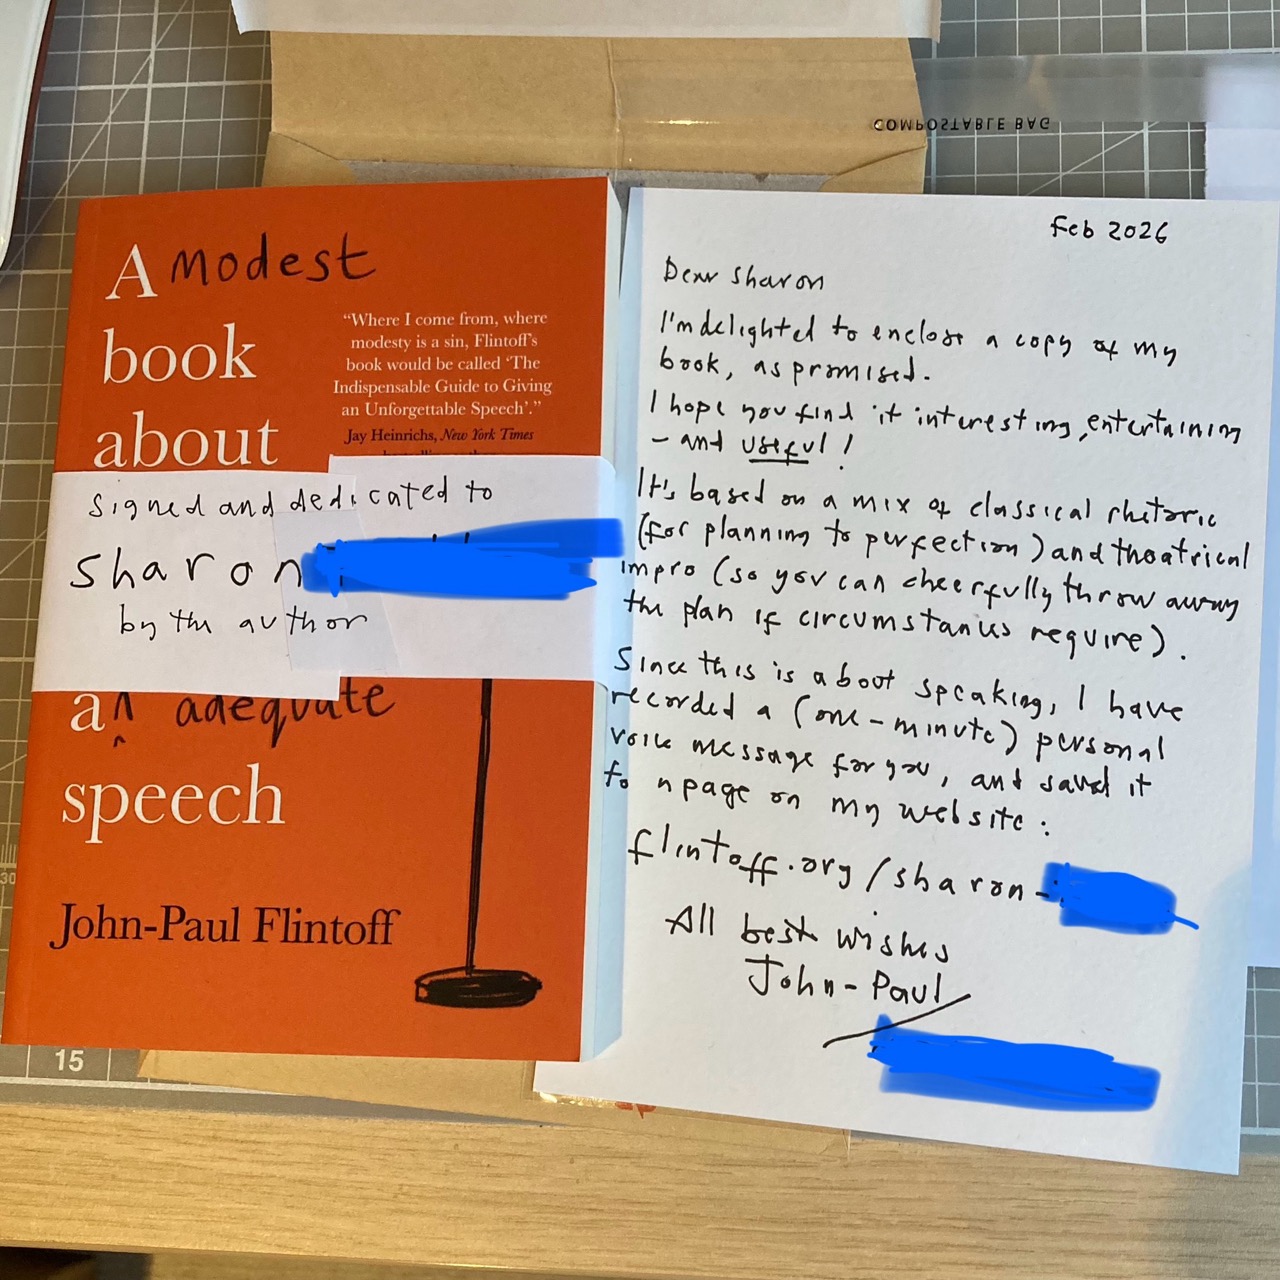 COMPOSTABLE BAG
A modest
book
about
"Where I come from, where
modesty is a sin, Flintoff's
book would be called 'The
Indispensable Guide to Giving
an Unforgettable Speech'."
Jay Heinrichs, New York Times
signed and dedicated to
sharon
by the author
an adequate
speech
John-Paul Flintoff
15
30
Feb 2026
Dear Sharon
I'm delighted to enclose a copy of my
book, as promised.
I hope you find it interesting, entertaining
– and useful!
It's based on a mix of classical rhetoric
(for planning to perfection) and theatrical
impro (so you can cheerfully throw away
the plan if circumstances require).
Since this is about speaking, I have
recorded a (one-minute) personal
voice message for you, and saved it
to a page on my website:
flintoff.org/sharon-
All best wishes
John-Paul